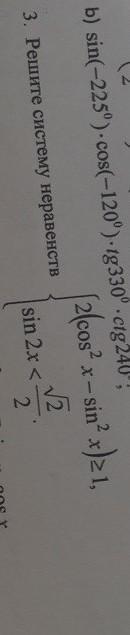 b) sin(−225⁰)·cos(−120⁰)·tg330⁰·ctg240⁰;
3. Решите систему неравенств { 2(cos² x − sin² x) ≥ 1,
sin 2x < √2/2.